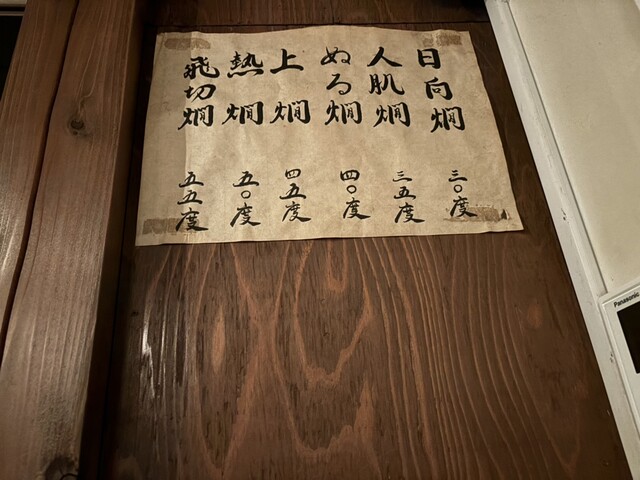 日向燗 三〇度
人肌燗 三五度
ぬる燗 四〇度
上燗 四五度
熱燗 五〇度
飛切燗 五五度
Panasonic